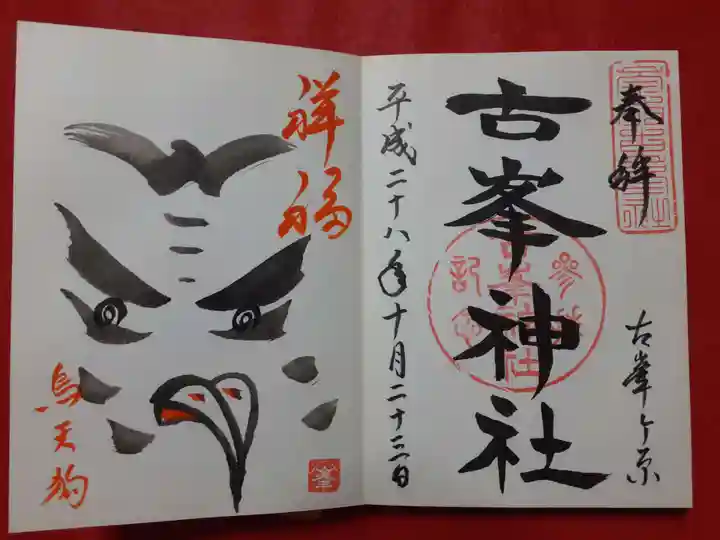 奉拜
古峯ヶ原
古峯神社
平成二十八年十月二十三日
祥福
烏天狗